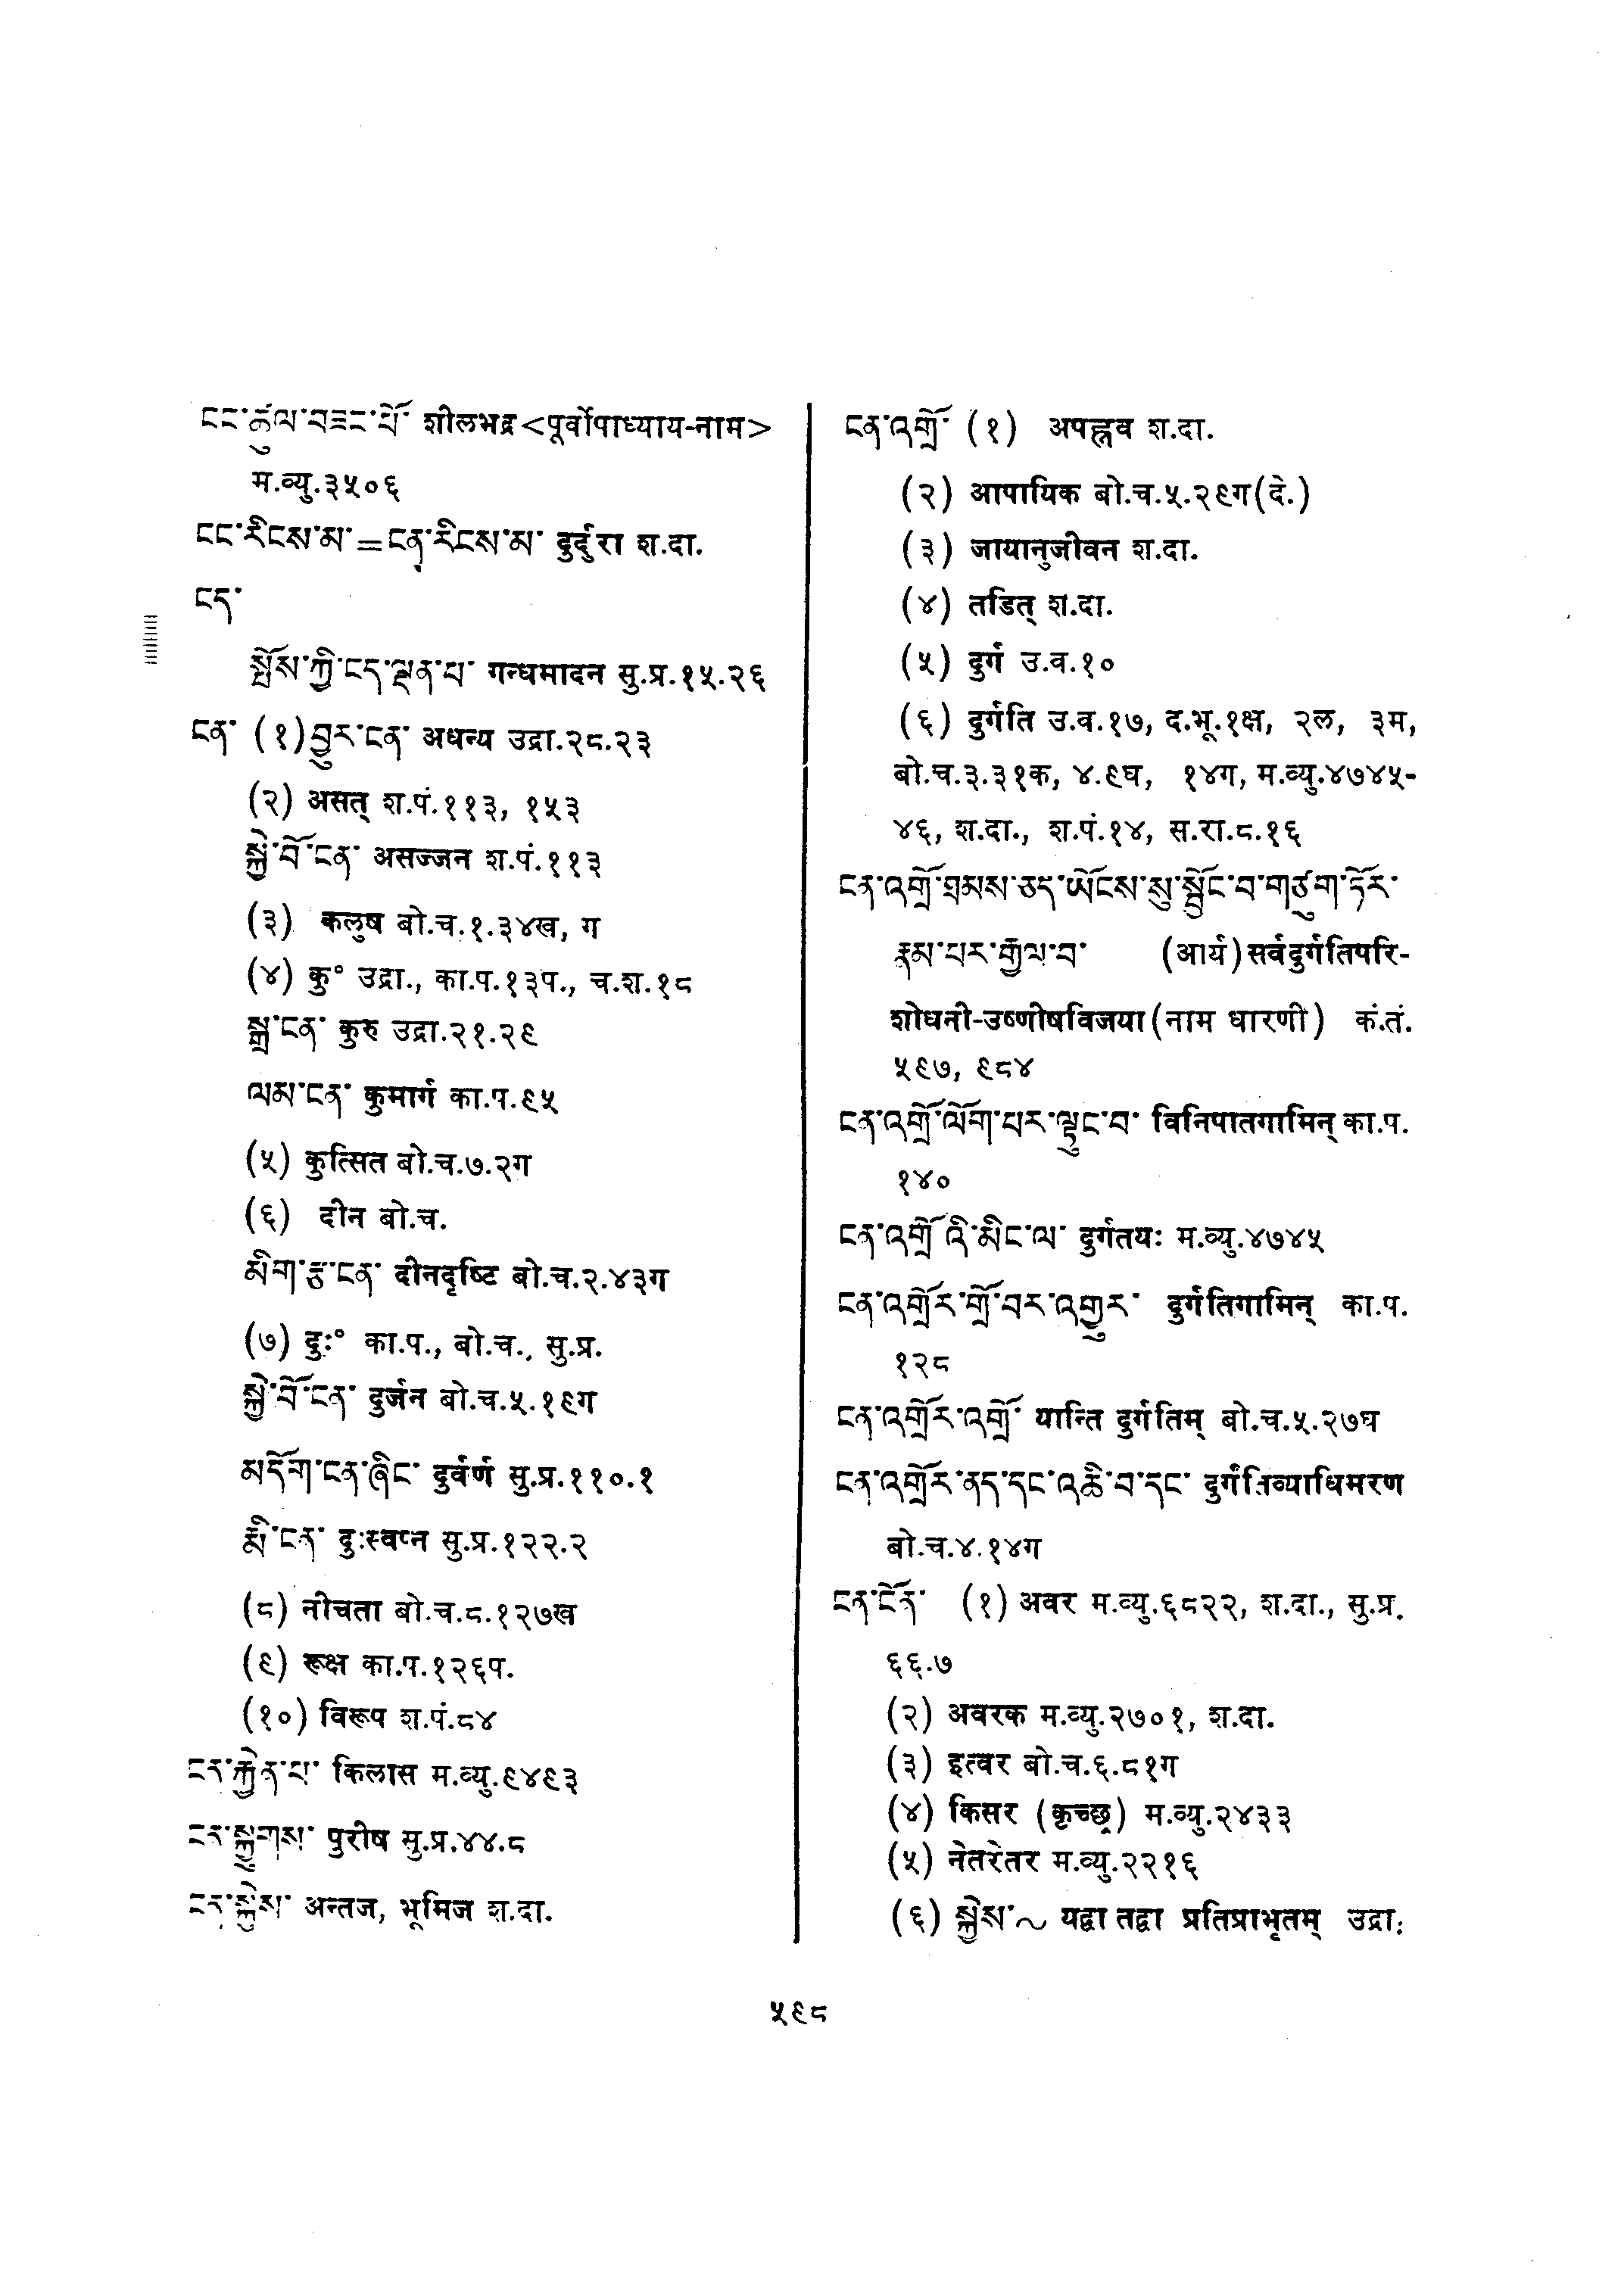 ངང་ཚུལ་བཟང་པོ་ शीलभद्र<पूर्वोपाध्याय-नाम>
म.व्यु.३५०६
ངང་རིངས་མ་=ངན་རིངས་མ་ दुर्दुरा श.दा.
ངད་
སྤོས་ཀྱི་ངད་ལྡན་པ་ गन्धमादन सु.प्र.१५.२६
ངན་ (१)བྱུར་ངན་ अधन्य उद्रा.२८.२३
(२) असत् श.पं.११३, १५३
སྐྱེ་བོ་ངན་ असज्जन श.पं.११३
(३) कलुष बो.च.१.३४ख, ग
(४) कु° उद्रा., का.प.१३प., च.श.१८
སྒྲ་ངན་ कुरु उद्रा.२१.२९
ལམ་ངན་ कुमार्ग का.प.९५
(५) कुत्सित बो.च.७.२ग
(६) दीन बो.च.
མིག་རྩ་ངན་ दीनदृष्टि बो.च.२.४३ग
(७) दुः° का.प., बो.च., सु.प्र.
སྐྱེ་བོ་ངན་ दुर्जन बो.च.५.१९ग
མདོག་ངན་ཞིང་ दुर्वर्ण सु.प्र.११०.१
རྨི་ངན་ दुःस्वप्न सु.प्र.१२२.२
(८) नीचता बो.च.८.१२७ख
(९) रूक्ष का.प.१२६प.
(१०) विरूप श.पं.८४
ངན་རྐྱེན་པ་ किलास म.व्यु.९४९३
ངན་སྐྱུགས་ पुरीष सु.प्र.४४.८
ངན་སྐྱེས་ अन्तज, भूमिज श.दा.
ངན་འགྲོ་ (१) अपह्नव श.दा.
(२) आपायिक बो.च.५.२९ग(दे.)
(३) जायानुजीवन श.दा.
(४) तडित् श.दा.
(५) दुर्ग उ.व.१०
(६) दुर्गति उ.व.१७, द.भू.१क्ष, २ल, ३म,
बो.च.३.३१क, ४.९घ, १४ग, म.व्यु.४७४५-
४६, श.दा., श.पं.१४, स.रा.८.१६
ངན་འགྲོ་ཐམས་ཅད་ཡོངས་སུ་སྦྱོང་བ་གཙུག་ཏོར་
རྣམ་པར་རྒྱལ་བ་ (आर्य)सर्वदुर्गतिपरि-
शोधनी-उष्णीषविजया(नाम धारणी) कं.तं.
५९७, ९८४
ངན་འགྲོ་ལོག་པར་ལྟུང་བ་ विनिपातगामिन् का.प.
१४०
ངན་འགྲོ་འི་མིང་ལ་ दुर्गतयः म.व्यु.४७४५
ངན་འགྲོར་གྲོ་བར་འགྱུར་ दुर्गतिगामिन् का.प.
१२८
ངན་འགྲོར་འགྲོ་ यान्ति दुर्गतिम् बो.च.५.२७घ
ངན་འགྲོར་ནད་དང་འཆི་བ་དང་ दुर्गतिव्याधिमरण
बो.च.४.१४ग
ངན་ངོན་ (१) अवर म.व्यु.६८२२, श.दा., सु.प्र.
६६.७
(२) अवरक म.व्यु.२७०१, श.दा.
(३) इत्वर बो.च.६.८१ग
(४) किसर (कृच्छ्र) म.व्यु.२४३३
(५) नेतरेतर म.व्यु.२२१६
(६) སྐྱེས་~ यद्वा तद्वा प्रतिप्राभृतम् उद्रा.
५९८